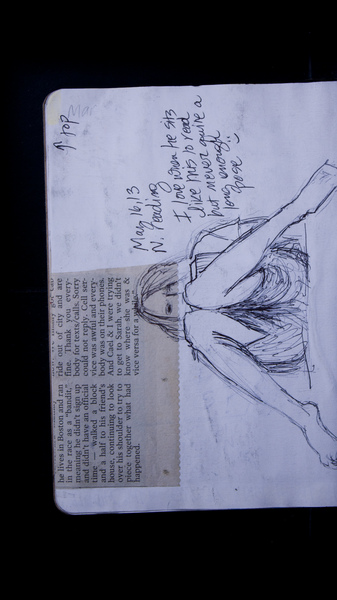 ↑ top
May 16, 13
N. reading
I love when he sits
like this to read
but never quite a
long enough
pose
he lives in Boston and ran
in the race as a “bandit,”
meaning he didn't sign up
and didn't have an official
time — walked a block
and a half to his friend's
house, continuing to look
over his shoulder to try to
piece together what had
happened.
ride out of city and are
fine. Thank you every-
body for texts/calls. Sorry
could not reply. Cell ser-
vice was awful and every-
body was on their phones.
And Cael & I were trying
to get to Sarah, we didn't
know where she was &
vice versa for a